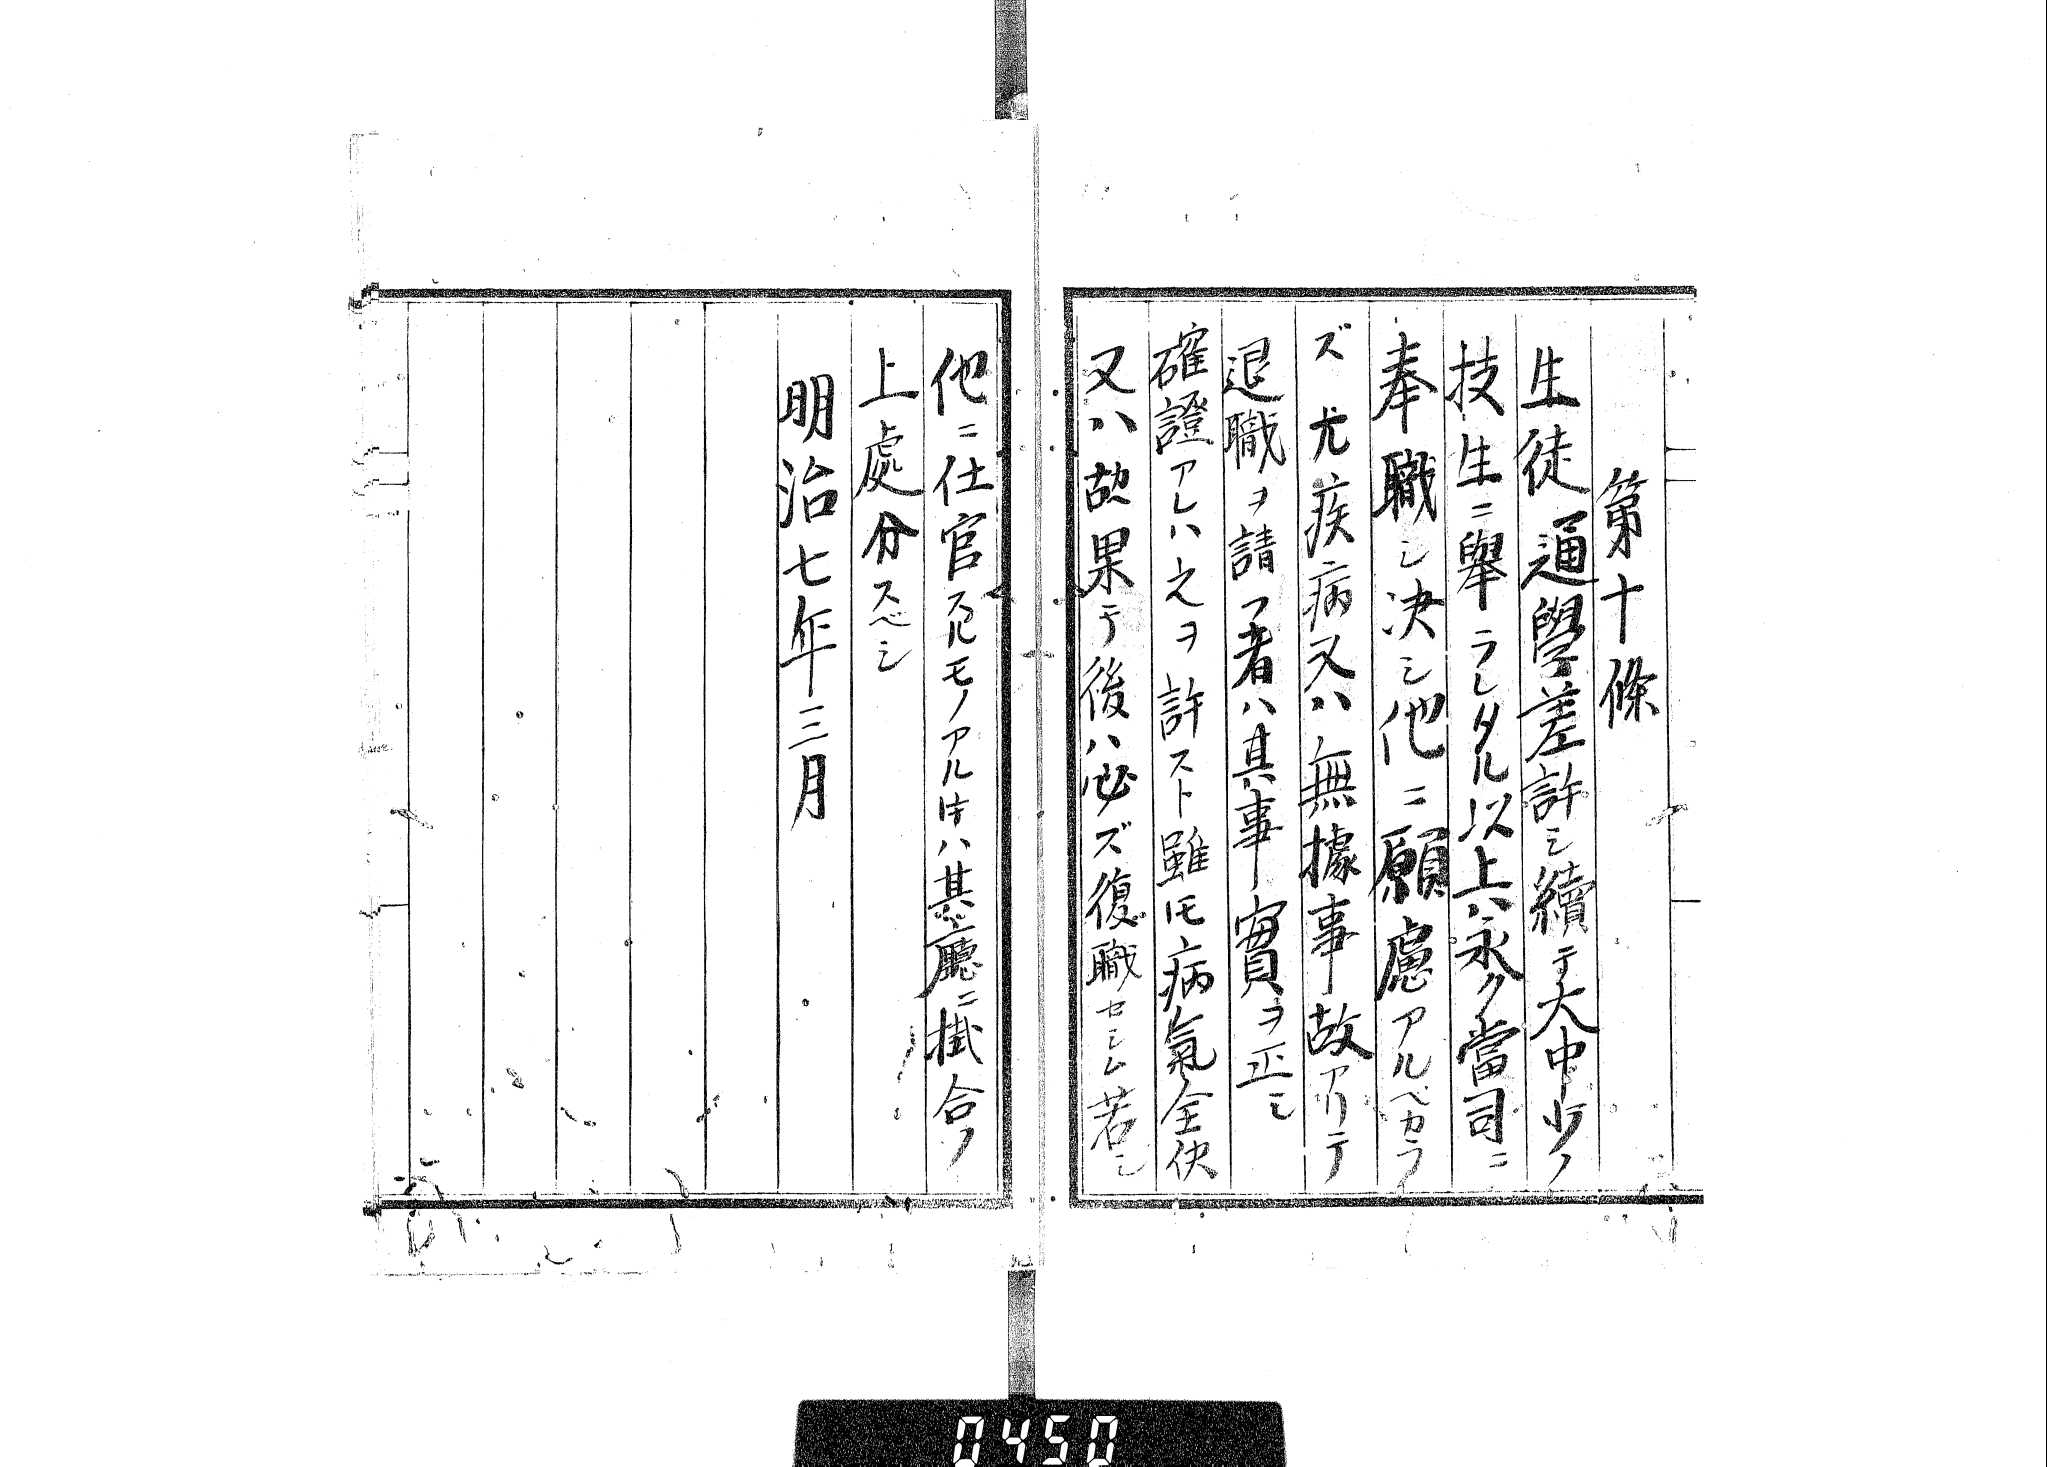 第十條
生徒通學差許シ續テ大中少ノ
技生ニ舉ラレタル以上ハ永ク當司ニ
奉職シ決シ他ニ願慮アルベカラ
ズ尤疾病又ハ無據事故アリテ
退職ヲ請フ者ハ其事實ヲ正シ
確證アレハ之ヲ許スト雖モ病氣全快
又ハ故果テ後ハ必ズ復職セシム若シ
他ニ仕官スルモノアル時ハ其廳ニ掛合ノ
上處分スベシ
明治七年三月
0450